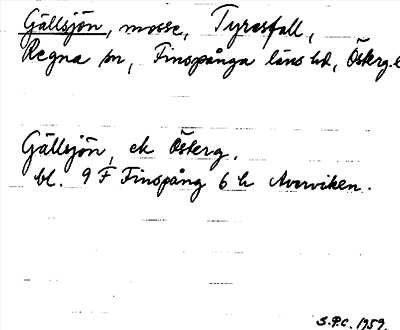 Gällsjön, mosse, Tyresfall,
Regna sn, Finspånga läns hd, Österg.l
Gällsjön, ek Österg.
bl. 9 F Finspång 6 h Averviken.
S.P.C. 1959.